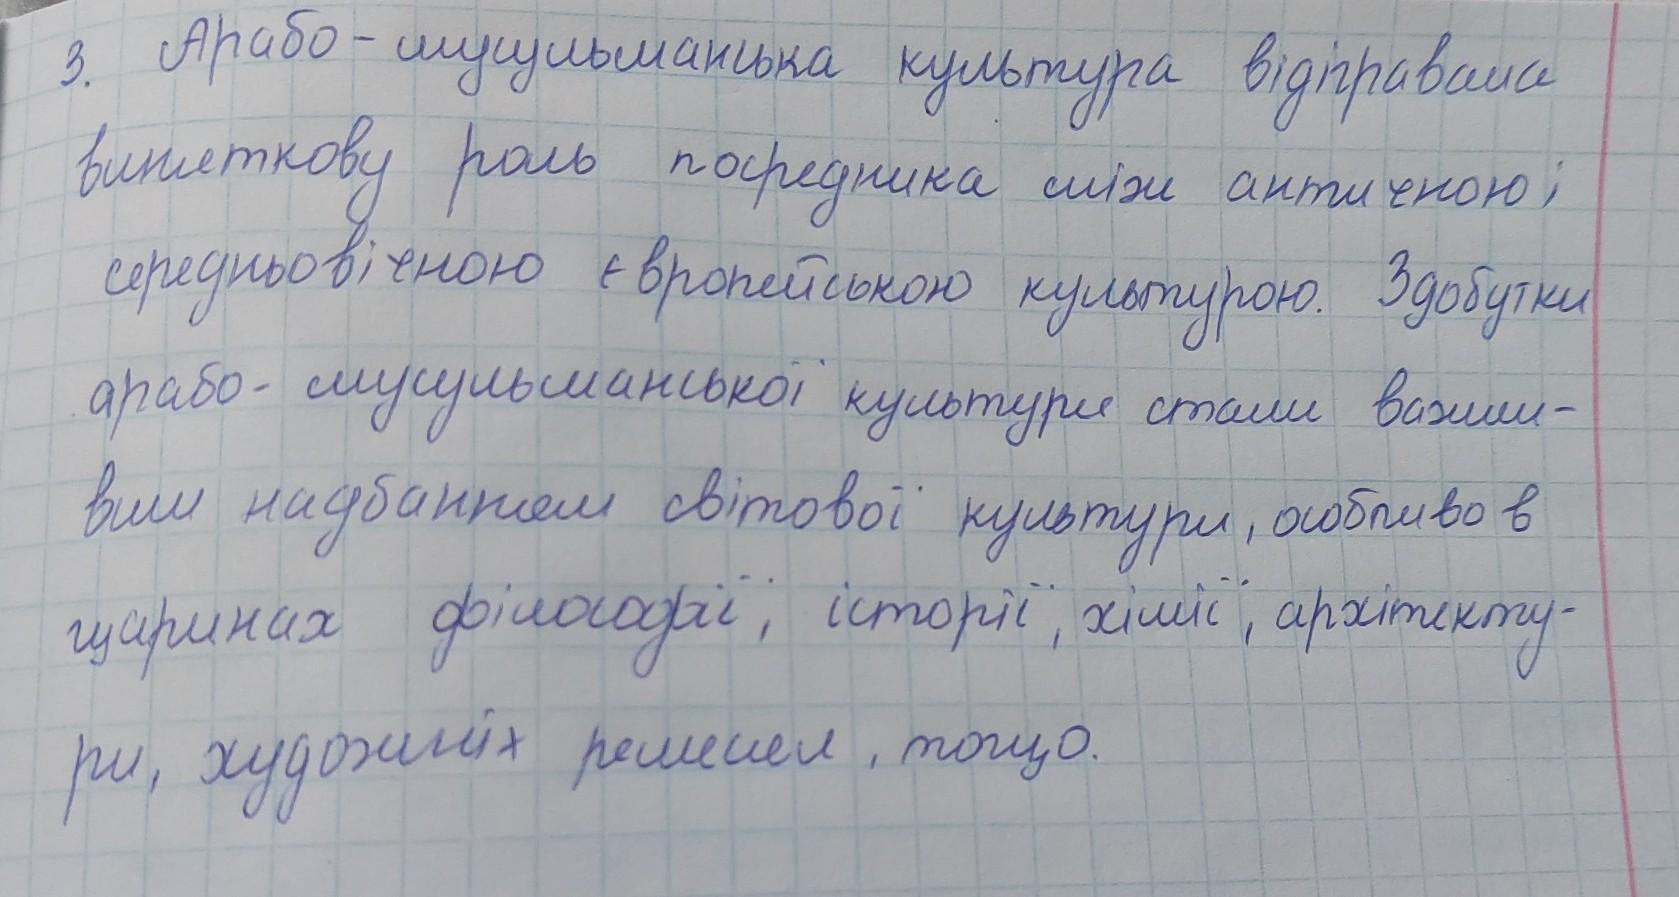 3. Арабо-мусульманська культура відігравала
виняткову роль посередника між античною і
середньовічною європейською культурою. Здобутки
арабо-мусульманської культури стали важли-
вим надбанням світової культури, особливо в
царинах філософії, історії, хімії, архітекту-
ри, художніх ремесел, тощо.